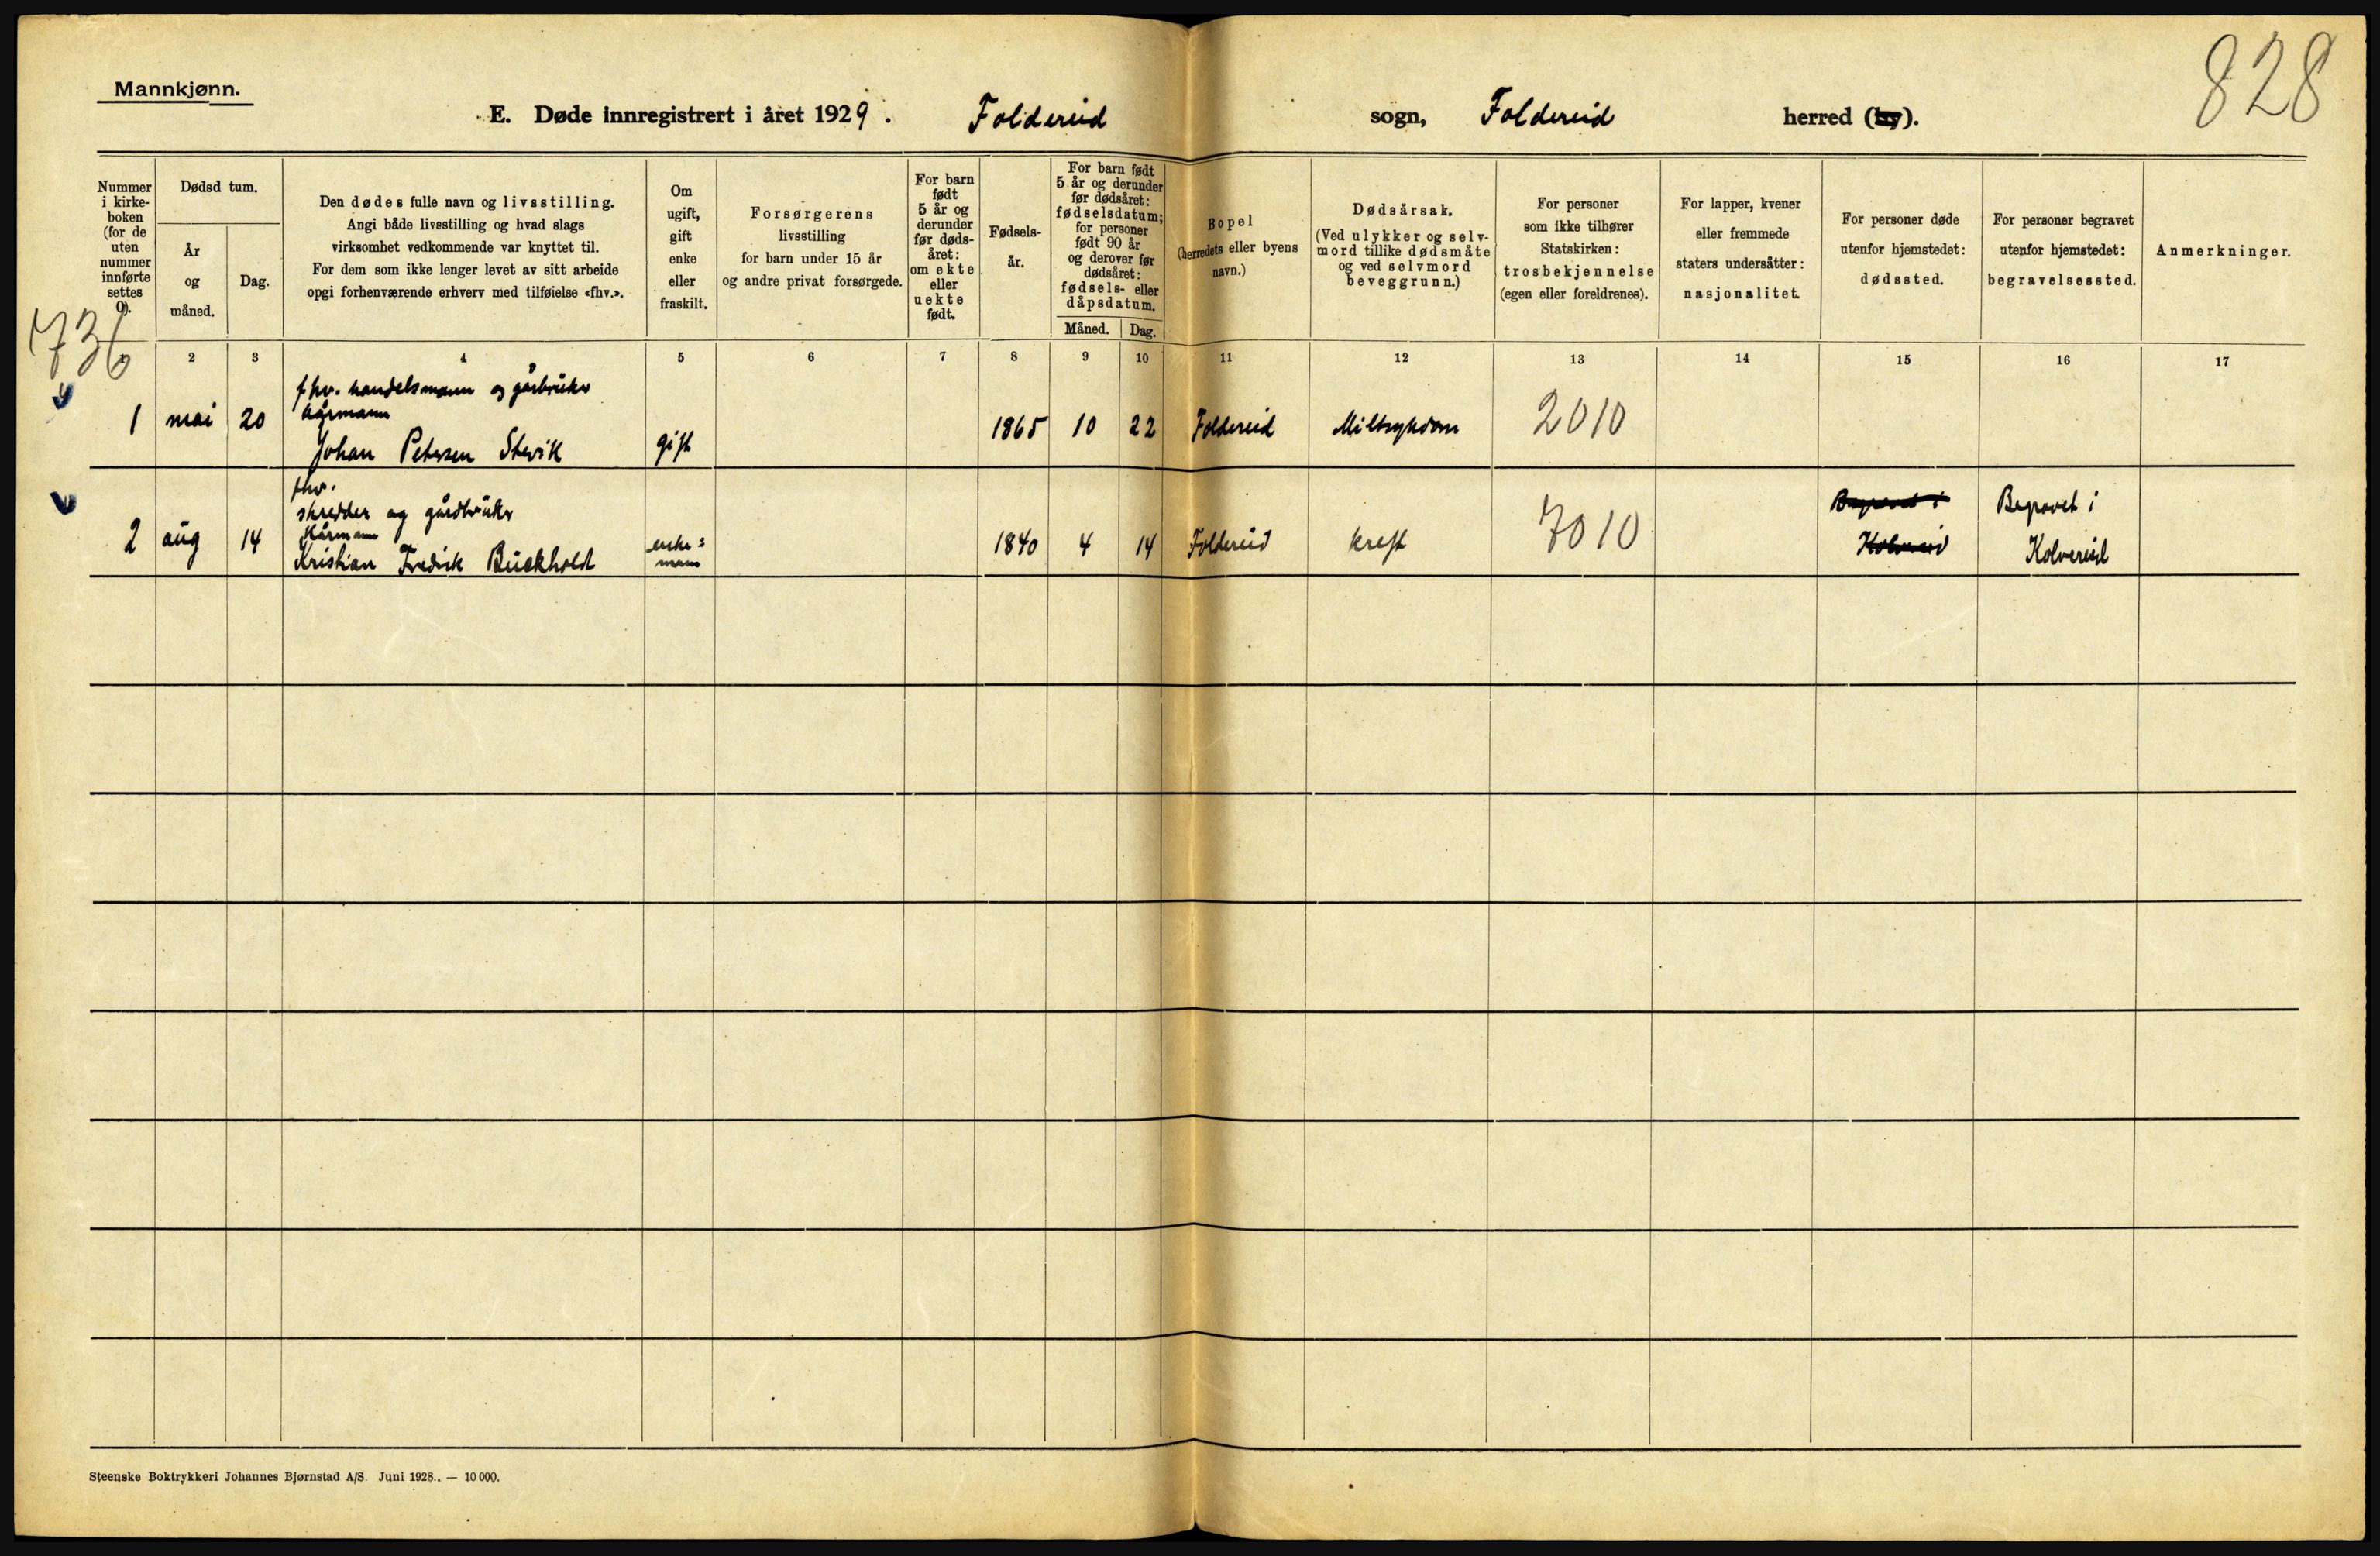 828
Mannkjønn.
E. Døde innregistrert i året 1929. Foldereid sogn, Foldereid herred (by).
Nummer
i kirke-
boken
(for de
uten
nummer
innførte
settes
0).
Dødsd tum.
År
og
måned.
Dag.
Den dødes fulle navn og livsstilling.
Angi både livsstilling og hvad slags
virksomhet vedkommende var knyttet til.
For dem som ikke lenger levet av sitt arbeide
opgi forhenværende erhverv med tilføielse «fhv.».
Om
ugift,
gift
enke
eller
fraskilt.
Forsørgerens
livsstilling
for barn under 15 år
og andre privat forsørgede.
For barn
født
5 år og
derunder
før døds-
året:
om ekte
eller
uekte
født.
Fødsels-
år.
For barn født
5 år og derunder
før dødsåret:
fødselsdatum;
for personer
født 90 år
og derover før
dødsåret:
fødsels- eller
dåpsdatum.
Måned. Dag.
Bopel
(herredets eller byens
navn.)
Dødsårsak.
(Ved ulykker og selv-
mord tillike dødsmåte
og ved selvmord
beveggrunn.)
For personer
som ikke tilhører
Statskirken:
trosbekjennelse
(egen eller foreldrenes).
For lapper, kvener
eller fremmede
staters undersåtter:
nasjonalitet.
For personer døde
utenfor hjemstedet:
dødssted.
For personer begravet
utenfor hjemstedet:
begravelsessted.
Anmerkninger.
736
1 2 3 4 5 6 7 8 9 10 11 12 13 14 15 16 17
fhv. handelsmann og gårbruker
kårmann
1 mai 20 Johan Petersen Stevik gift 1865 10 22 Foldereid Miltsykdom 2010
fhv.
skredder og gårdbruker
Kårmann
2 aug 14 Kristian Fredrik Buckholdt enke=
mann 1840 4 14 Foldereid kreft 7010
Begravet i
Kolvereid
Begravet i
Kolvereid
Steenske Boktrykkeri Johannes Bjørnstad A/S. Juni 1928.. — 10 000.